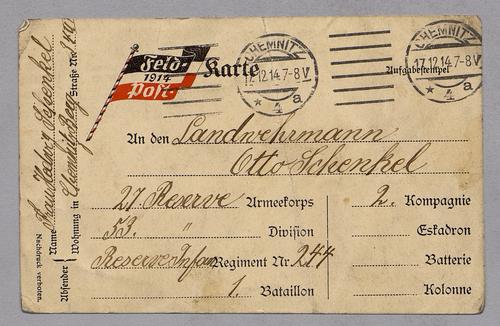 Feld-
1914
Post-
Karte
CHEMNITZ
17.12.14.7-8V
* 4 a
Aufgabestempel
CHEMNITZ
17.12.14.7-8V
* 4 a
An den Landwehrmann
Otto Schenkel
27. Reserve Armeekorps
53. " Division
Reserve Infan Regiment Nr. 244
1. Bataillon
2. Kompagnie
Eskadron
Batterie
Kolonne
Absender
Name Schenkel
Wohnung in Chemnitz
Straße Nr.
Nachdruck verboten.